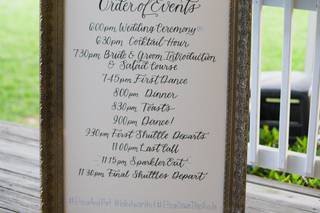 Order of Events
6:00pm Wedding Ceremony
6:30pm Cocktail Hour
7:30pm Bride & Groom Introduction
& Salad Course
7:45pm First Dance
8:00pm Dinner
8:30pm Toasts
9:00pm Dance!
9:30pm First Shuttle Departs
11:00pm Last Call
11:15pm Sparkler Exit
11:30pm Final Shuttles Depart